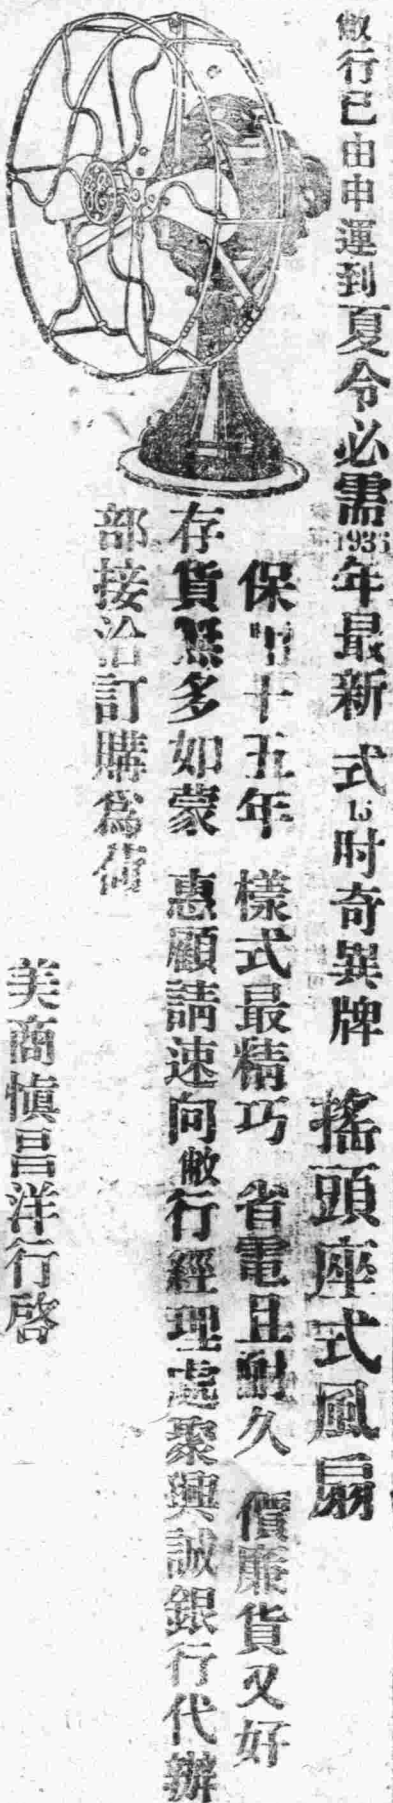 敝行已由申運到夏令必需1936年最新式16吋奇異牌 搖頭座式風扇
保用十五年 樣式最精巧 省電且耐久 價廉貨又好
存貨無多如蒙 惠顧請速向敝行經理處聚興誠銀行代辦
部接洽訂購爲荷
美商慎昌洋行啓